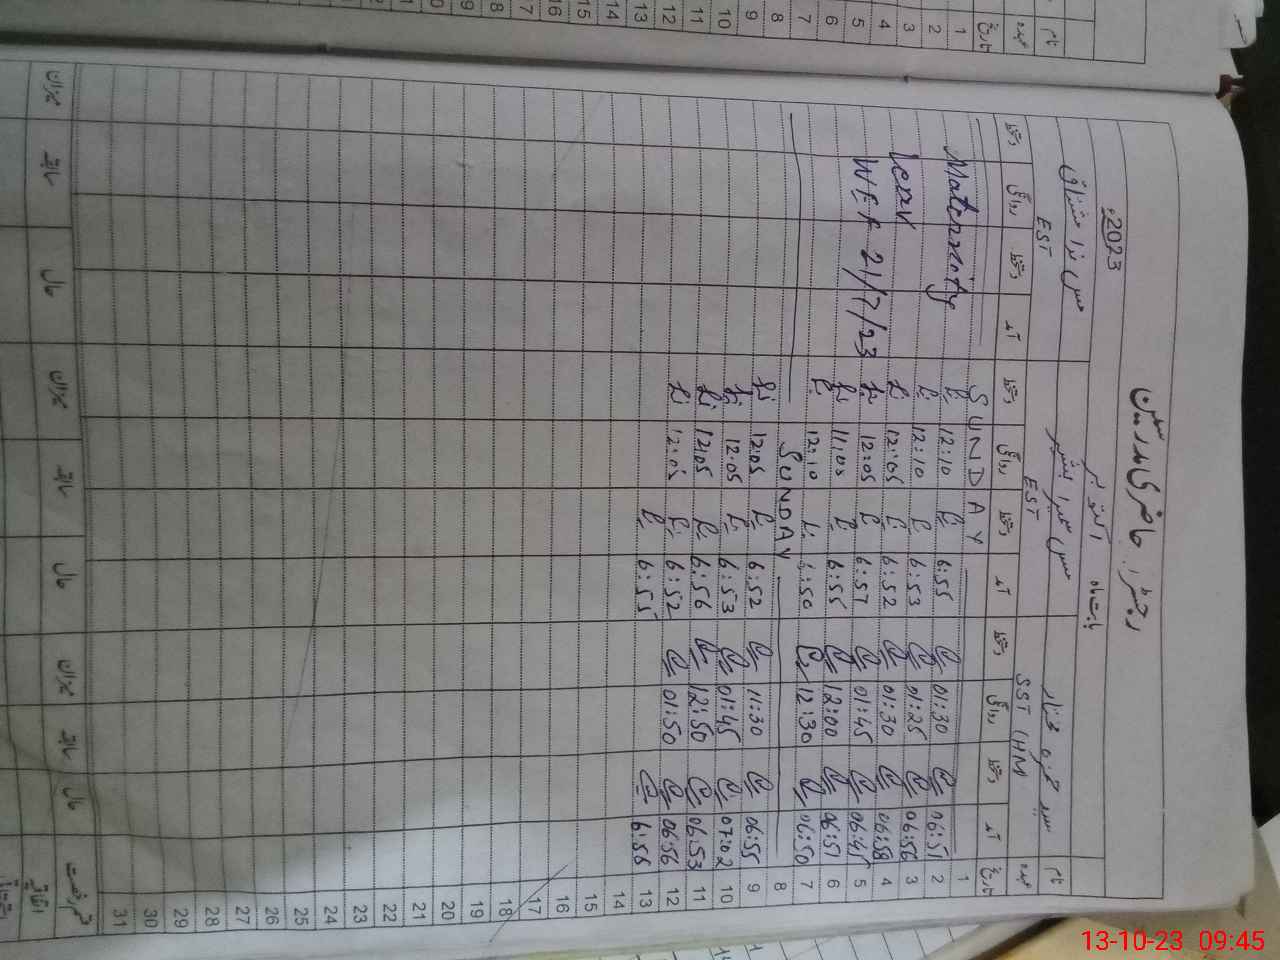 رجسٹر حاضری مدرسین
بابت ماہ اکتوبر 2023ء
نام
عہدہ SST (HM) EST EST
تاریخ آمد دستخط روانگی دستخط آمد دستخط روانگی دستخط آمد دستخط روانگی دستخط
1 SUNDAY
2 06:51 01:30 6:55 12:10 Maternity
3 06:56 01:25 6:53 12:10
4 06:58 01:30 6:52 12:05 Leav
5 06:45 01:45 6:57 12:05 WEF 21/7/23
6 06:51 12:00 6:55 11:05
7 06:50 12:30 6:50 12:10
8 SUNDAY
9 06:55 11:30 6:52 12:05
10 07:02 01:45 6:53 12:05
11 06:53 12:50 6:56 12:05
12 06:56 01:50 6:52 12:05
13 6:56 6:55
14
15
16
17
18
19
20
21
22
23
24
25
26
27
28
29
30
31
قسم رخصت حال سابقہ میزان حال سابقہ میزان حال سابقہ میزان
اتفاقیہ
13-10-23 09:45